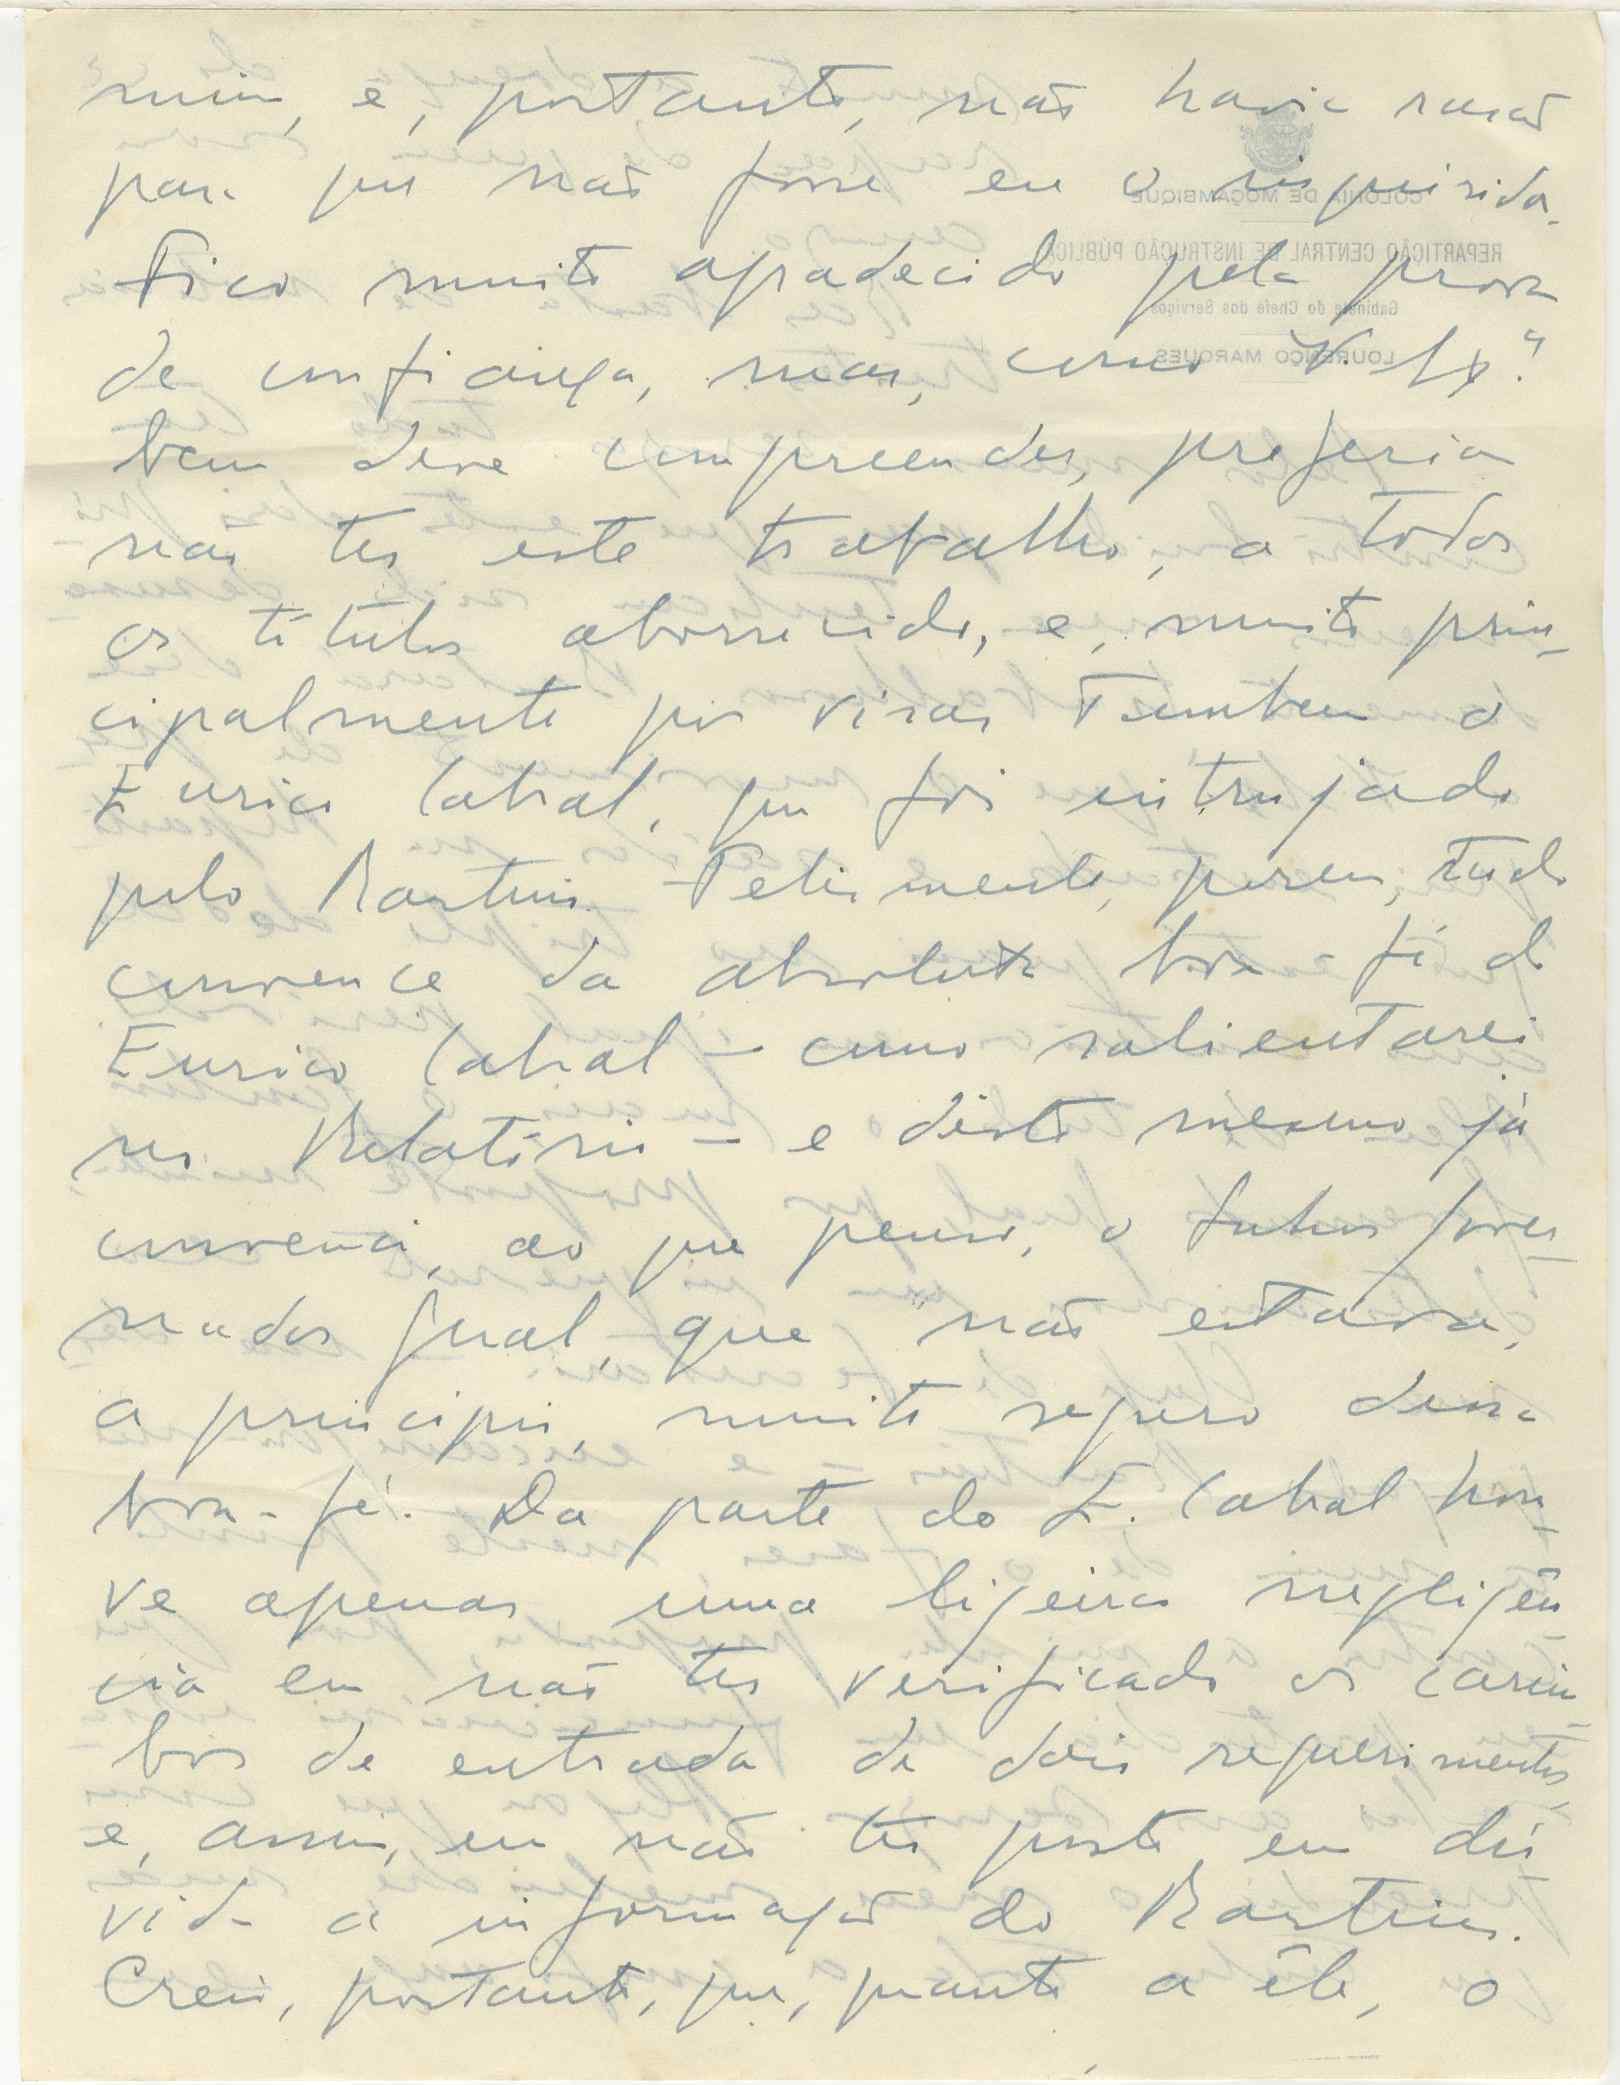 mim, e, portanto, não havia razão
para que não fosse eu o inquiridor.
Fico muito agradecido pela prova
de confiança, mas, como V. Exª.
bem deve compreender, preferia
não ter este trabalho, a todos
os títulos aborrecido, e, muito prin-
cipalmente por visar tambem o
Eurico Cabral, que foi intrujado
pelo Martins. Felismente, porem, tudo
convence da absoluta boa-fé do
Eurico Cabral — como salientarei
no Relatório — e disto mesmo já
convenci, ao que penso, o futuro Gover-
nador Geral, que não estava,
a principio, muito seguro dessa
boa-fé. Da parte do E. Cabral hou-
ve apenas uma ligeira negligên-
cia em não ter verificado os carim-
bos de entrada de dois requerimentos,
e, assim, em não ter posto em dú-
vida a informação do Martins.
Creio, portanto, que, quanto a êle, o
COLONIA DE MOÇAMBIQUE
REPARTIÇÃO CENTRAL DE INSTRUÇÃO PÚBLICA
Gabinete do Chefe dos Serviços
LOURENÇO MARQUES